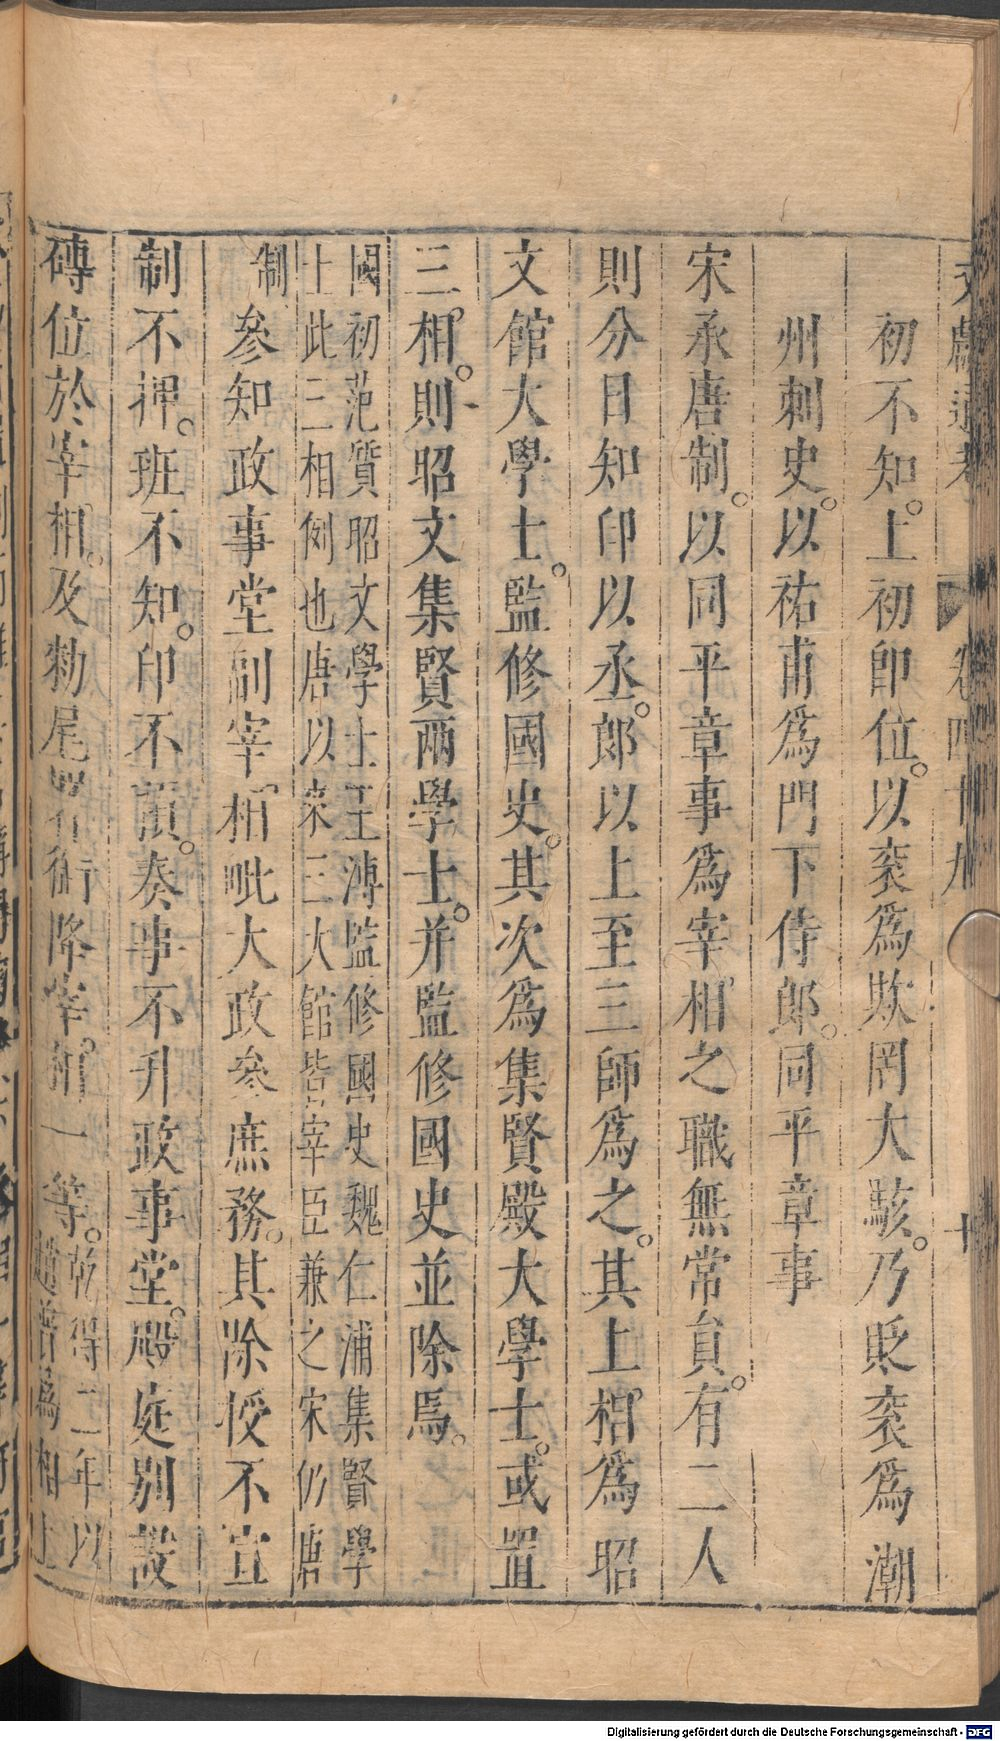 文獻通考 卷四十九 十
初不知。上初即位。以衮爲欺罔大駭。乃貶衮爲潮
州刺史。以祐甫爲門下侍郎。同平章事
宋承唐制。以同平章事爲宰相之職無常員。有二人
則分日知印以丞。郎以上至三師爲之。其上相爲昭
文館大學士。監修國史。其次爲集賢殿大學士。或置
三相。則昭文集賢兩學士。并監修國史並除焉。
國初范質昭文學士王溥監修國史魏仁浦集賢學
士此三相例也唐以來三大館皆宰臣兼之宋仍唐
制
參知政事堂副宰相毗大政參庶務。其除授不宣
制不押。班不知。印不預。奏事不升政事堂。殿庭別設
磚位於宰相。及勑尾署銜降宰相一等。
乾得二年以
趙普爲相上
Digitalisierung gefördert durch die Deutsche Forschungsgemeinschaft - DFG